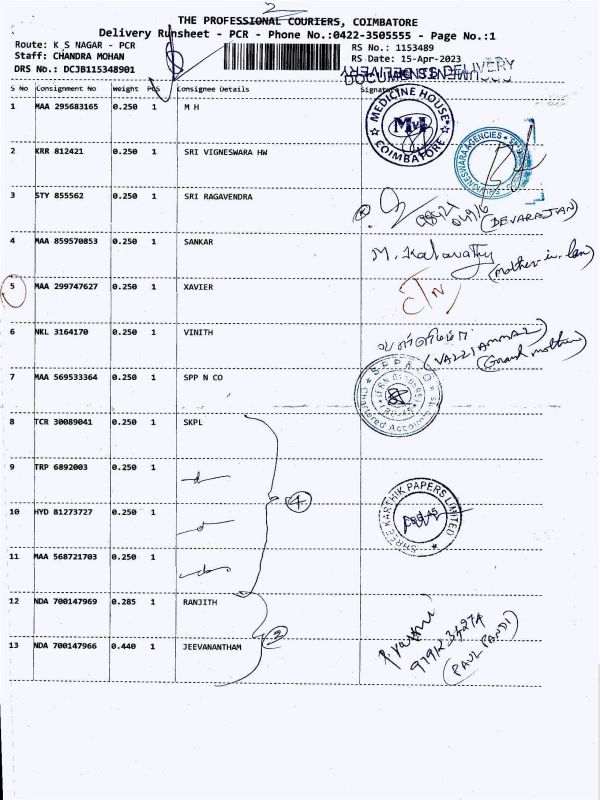 2
THE PROFESSIONAL COURIERS, COIMBATORE
Delivery Runsheet - PCR - Phone No.:0422-3505555 - Page No.:1
Route: K S NAGAR - PCR
RS No.: 1153489
Staff: CHANDRA MOHAN
RS Date: 15-Apr-2023
DRS No.: DCJB115348901
S No Consignment No Weight PCS Consignee Details Signature
1 MAA 295683165 0.250 1 M H
MEDICINE HOUSE
COIMBATORE
2 KRR 812421 0.250 1 SRI VIGNESWARA HW
3 STY 855562 0.250 1 SRI RAGAVENDRA
(DEVARAJAN)
4 MAA 859570853 0.250 1 SANKAR
M. Kalavathy (mother-in-law)
5 MAA 299747627 0.250 1 XAVIER
6 NKL 3164170 0.250 1 VINITH
(VALLIAMMAL)
(Grand mother)
7 MAA 569533364 0.250 1 SPP N CO
SPP & CO
Chartered Accountants
8 TCR 30089041 0.250 1 SKPL
9 TRP 6892003 0.250 1
4
10 HYD 81273727 0.250 1
SHREE KARTHIK PAPERS LIMITED
11 MAA 568721703 0.250 1
12 NDA 700147969 0.285 1 RANJITH
2
13 NDA 700147966 0.440 1 JEEVANANTHAM
(PAUL PANDI)